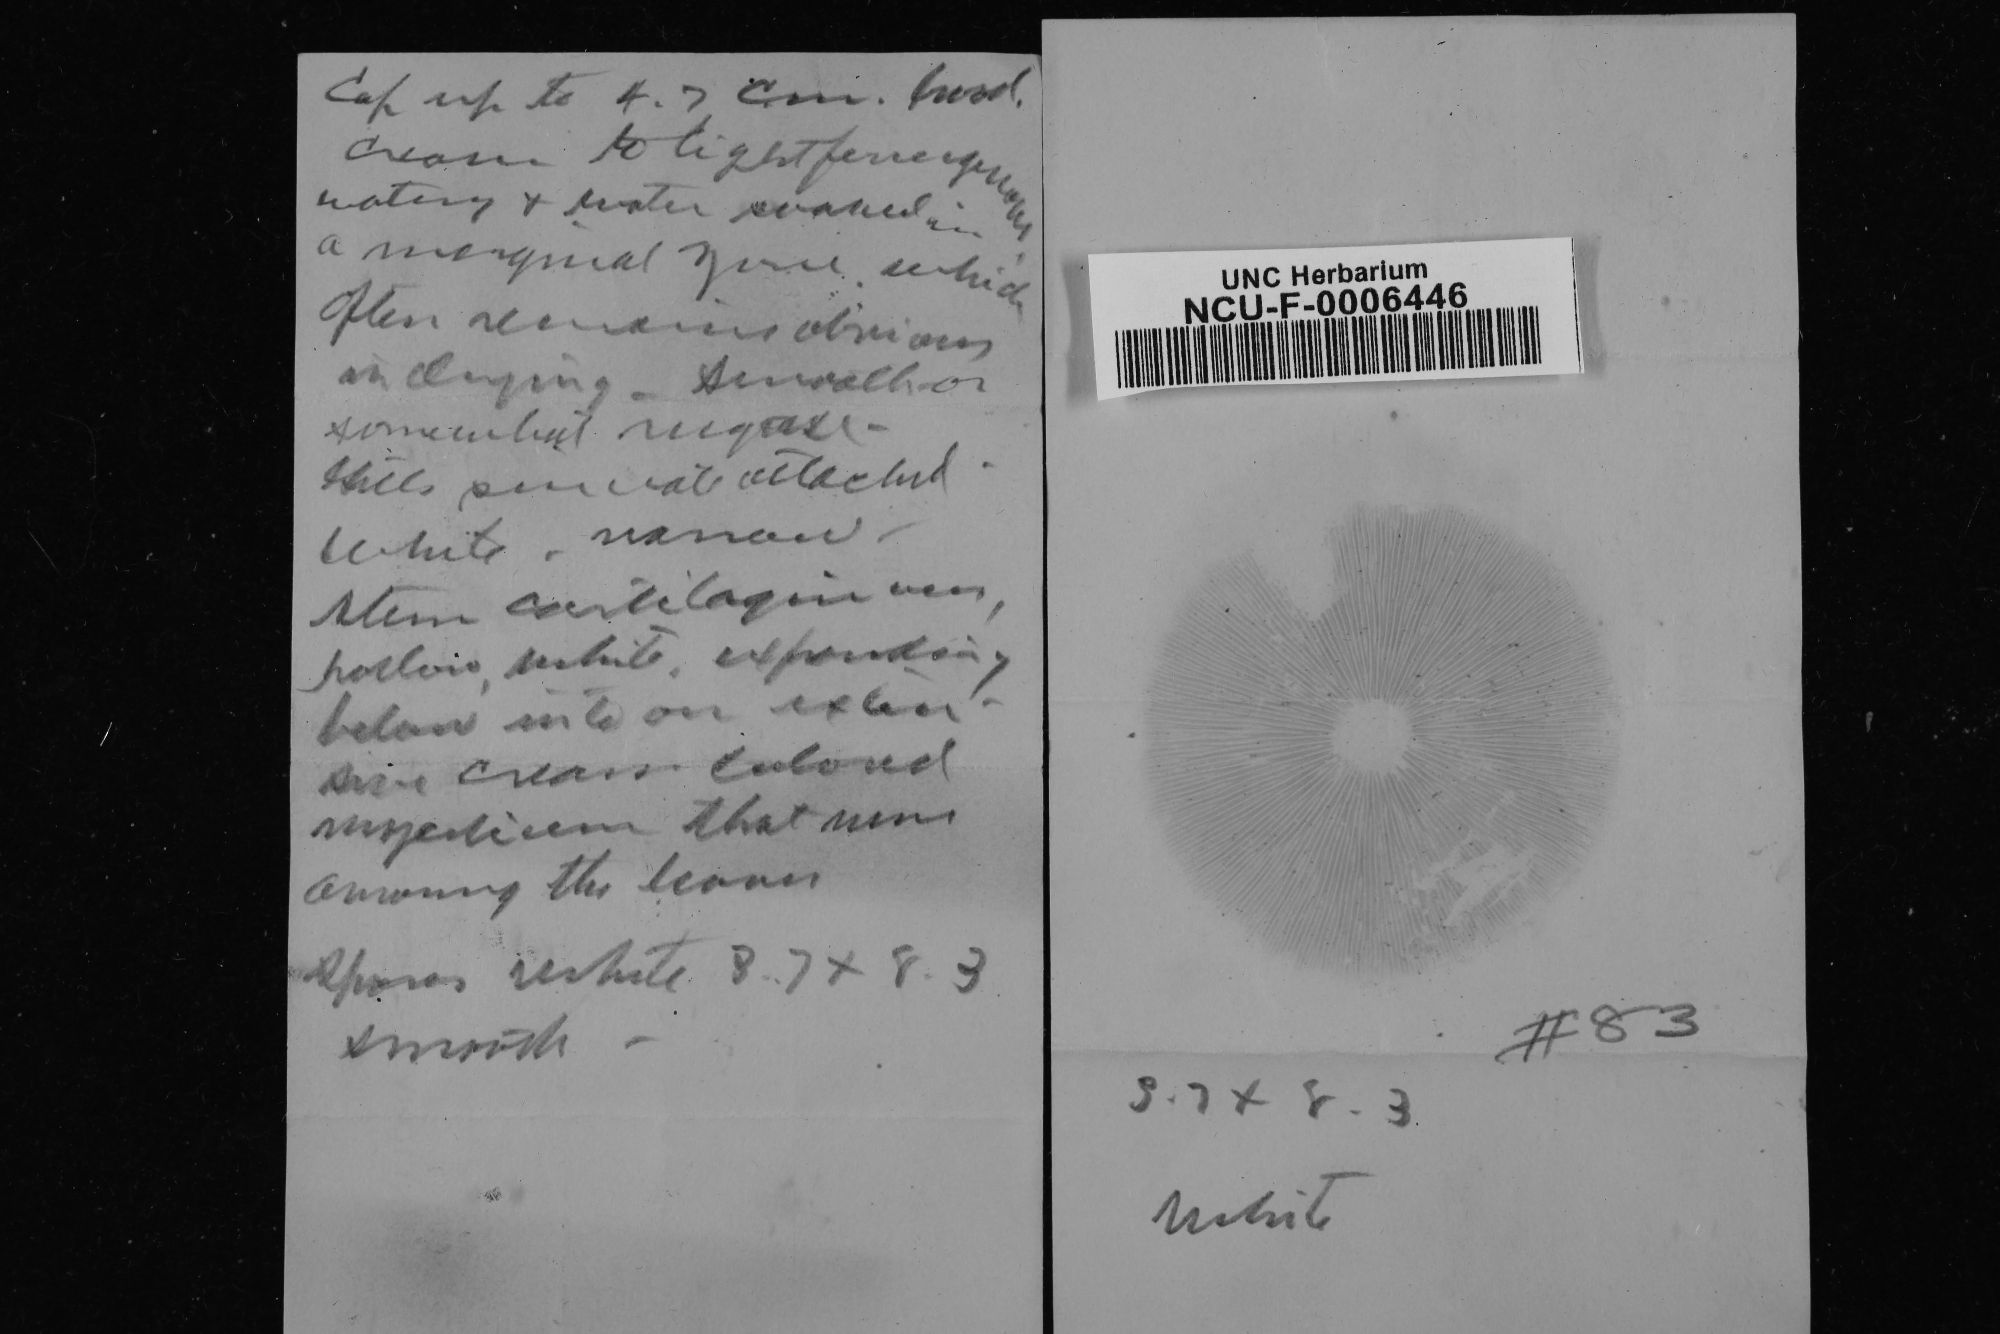 Cap up to 4.7 cm. broad.
cream to light ferrugenous
watery & water soaked in
a marginal zone which
often remains obvious
in drying - Smooth or
somewhat rugose -
Gills sinuate attached -
white - narrow -
Stem cartilaginous,
hollow, white, expanding
below into an exten-
sive cream colored
mycelium that runs
among the leaves
Spores white 3.7 x 8.3
smooth -
UNC Herbarium
NCU-F-0006446
#83
3.7 x 8.3
white